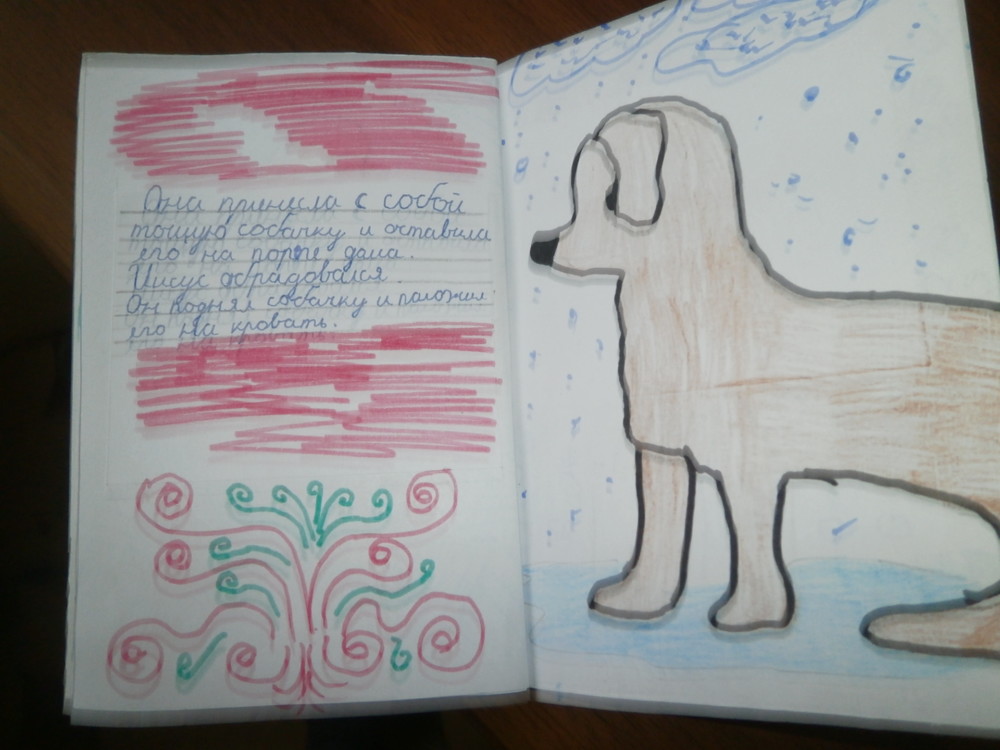 Она принесла с собой
тощую собачку и оставила
его на порге дома.
Иисус обрадовался.
Он поднял собачку и положил
его на кровать.